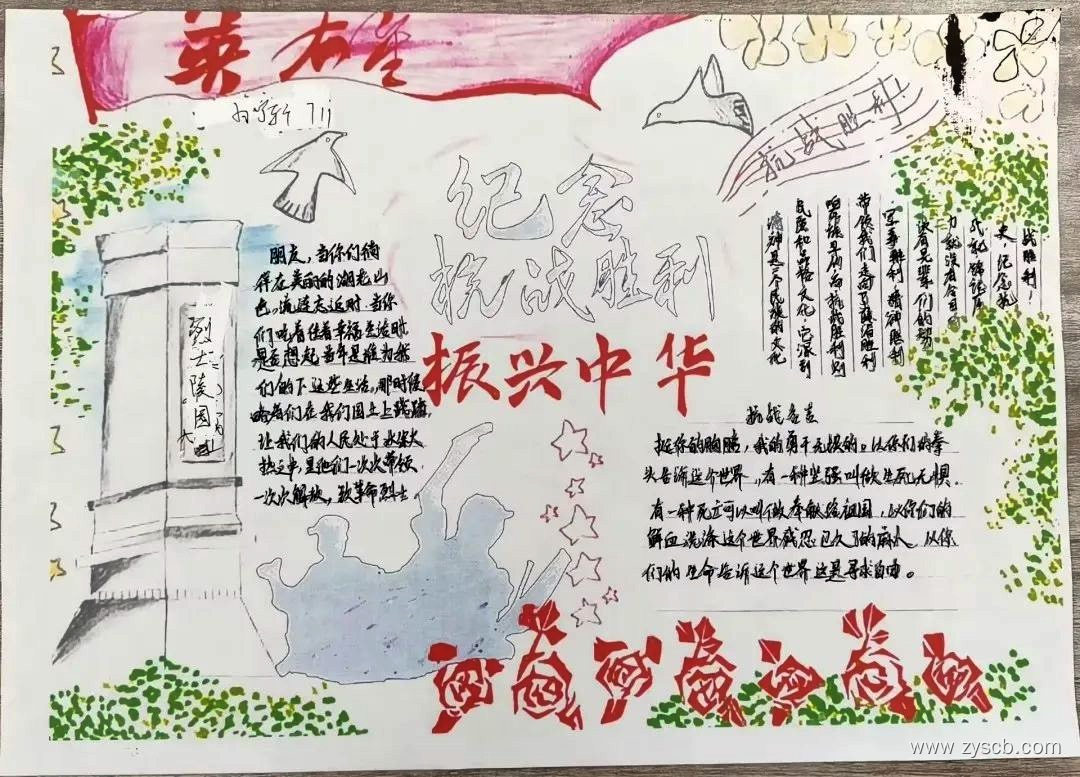 英雄
711
抗战胜利
纪念
抗战胜利
振兴中华
烈士陵园
朋友，当你们徜
徉在美丽的湖光山
色，流连忘返时，当你
们吃着住着幸福生活时
是否想起当年是谁为我
们的下这些生活，那时侯
们在我们国土上践踏，
让我们的人民处于水深火
热之中，是他们一次次带领
一次次解放，致革命烈士
战胜利，
史，纪念抗
我就铭记历
力就没有今日的
没有先辈们的努
军事胜利 精神胜利
带领我们走向了政治胜利
中而抗战胜利则
民族和品格文化，它深刻
精神是一个民族的文化
抗战名言
挺你的胸膛，我的勇于无惧的。以你们的拳
头告诉这个世界，有一种坚强叫做生死无惧.
有一种死亡可以叫做奉献给祖国，以你们的
鲜血洗涤这个世界感忍已久了的病人，以你
们的生命告诉这个世界这是寻求自由。
www.zyscb.com